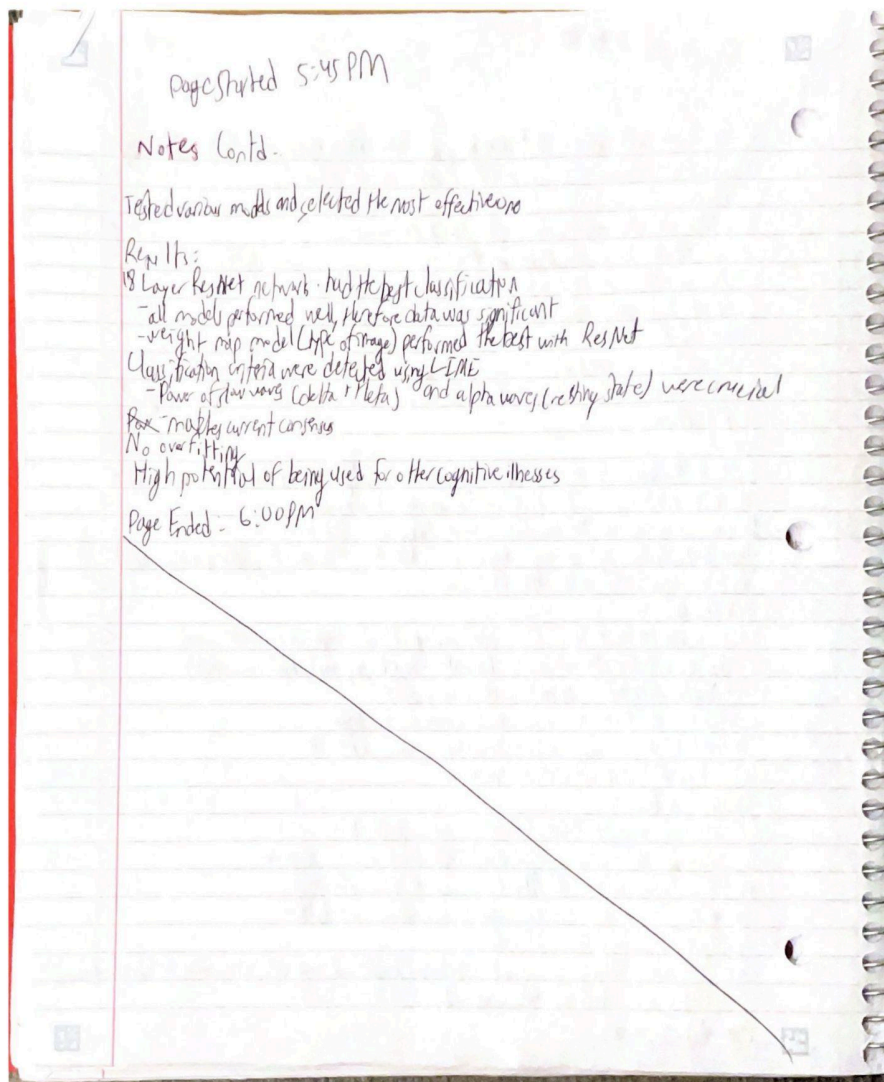 Page Started 5:45 PM
Notes Contd.
Tested various models and selected the most effective one
Results:
18 Layer ResNet network had the best classification
- all models performed well, therefore data was significant
- weight map model (type of image) performed the best with ResNet
Classification criteria were detected using LIME
- Power of slow waves (delta + theta) and alpha waves (resting state) were crucial
- matches current consensus
No overfitting
High potential of being used for other cognitive illnesses
Page Ended: 6:00 PM